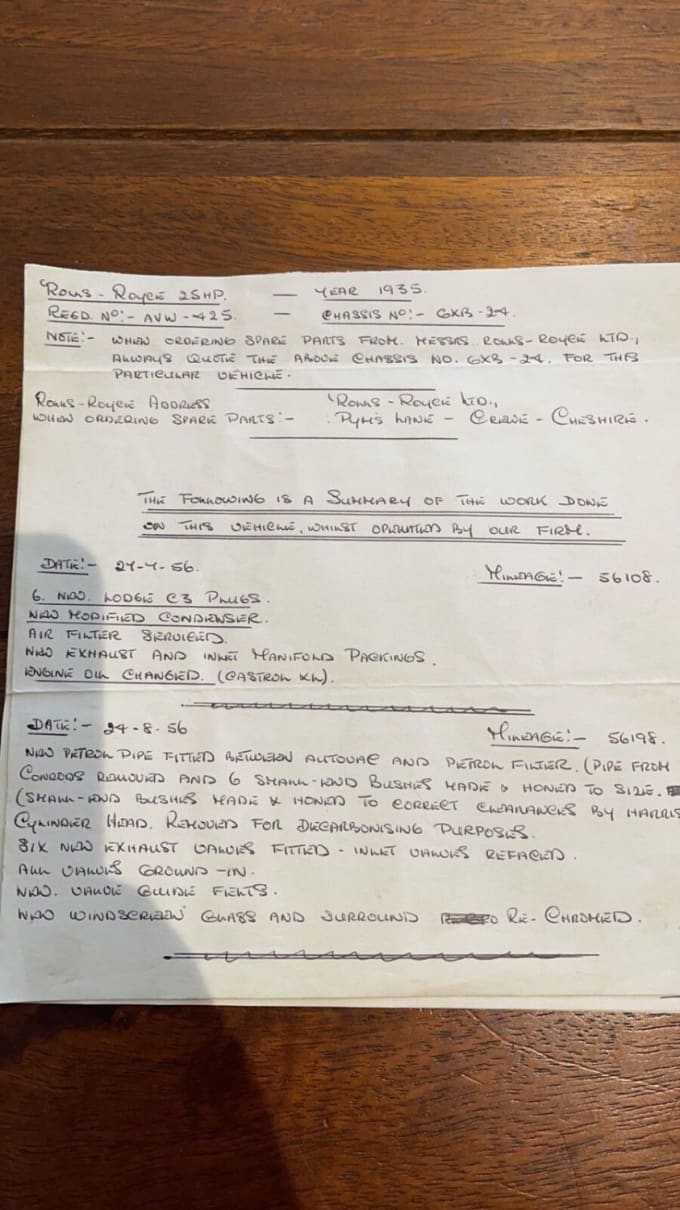 ROLLS-ROYCE 25HP. — YEAR 1935.
REGD. NO:- AVW-425. — CHASSIS NO:- GXB-24.
NOTE:- WHEN ORDERING SPARE PARTS FROM MESSRS. ROLLS-ROYCE LTD.,
ALWAYS QUOTE THE ABOVE CHASSIS NO. GXB-24. FOR THIS
PARTICULAR VEHICLE.
ROLLS-ROYCE ADDRESS ROLLS-ROYCE LTD.,
WHEN ORDERING SPARE PARTS:- PYM'S LANE - CREWE - CHESHIRE.
THE FOLLOWING IS A SUMMARY OF THE WORK DONE
ON THIS VEHICLE, WHILST OPERATED BY OUR FIRM.
DATE:- 27-7-56. MILEAGE:- 56108.
6. NEW. LODGE C3 PLUGS.
NEW MODIFIED CONDENSER.
AIR FILTER SERVICED.
NEW EXHAUST AND INLET MANIFOLD PACKINGS.
ENGINE OIL CHANGED. (CASTROL XL).
DATE:- 24-8-56 MILEAGE:- 56198.
NEW PETROL PIPE FITTED BETWEEN AUTOVAC AND PETROL FILTER. (PIPE FROM
CONRODS REMOVED AND 6 SMALL-END BUSHES MADE & HONED TO SIZE.
(SMALL-END BUSHES MADE & HONED TO CORRECT CLEARANCES BY HARRIS
CYLINDER HEAD. REMOVED FOR DECARBONISING PURPOSES.
SIX NEW EXHAUST VALVES FITTED - INLET VALVES REFACED.
ALL VALVES GROUND-IN.
NEW. VALVE GUIDE FELTS.
NEW WINDSCREEN GLASS AND SURROUND RE-CHROMED.